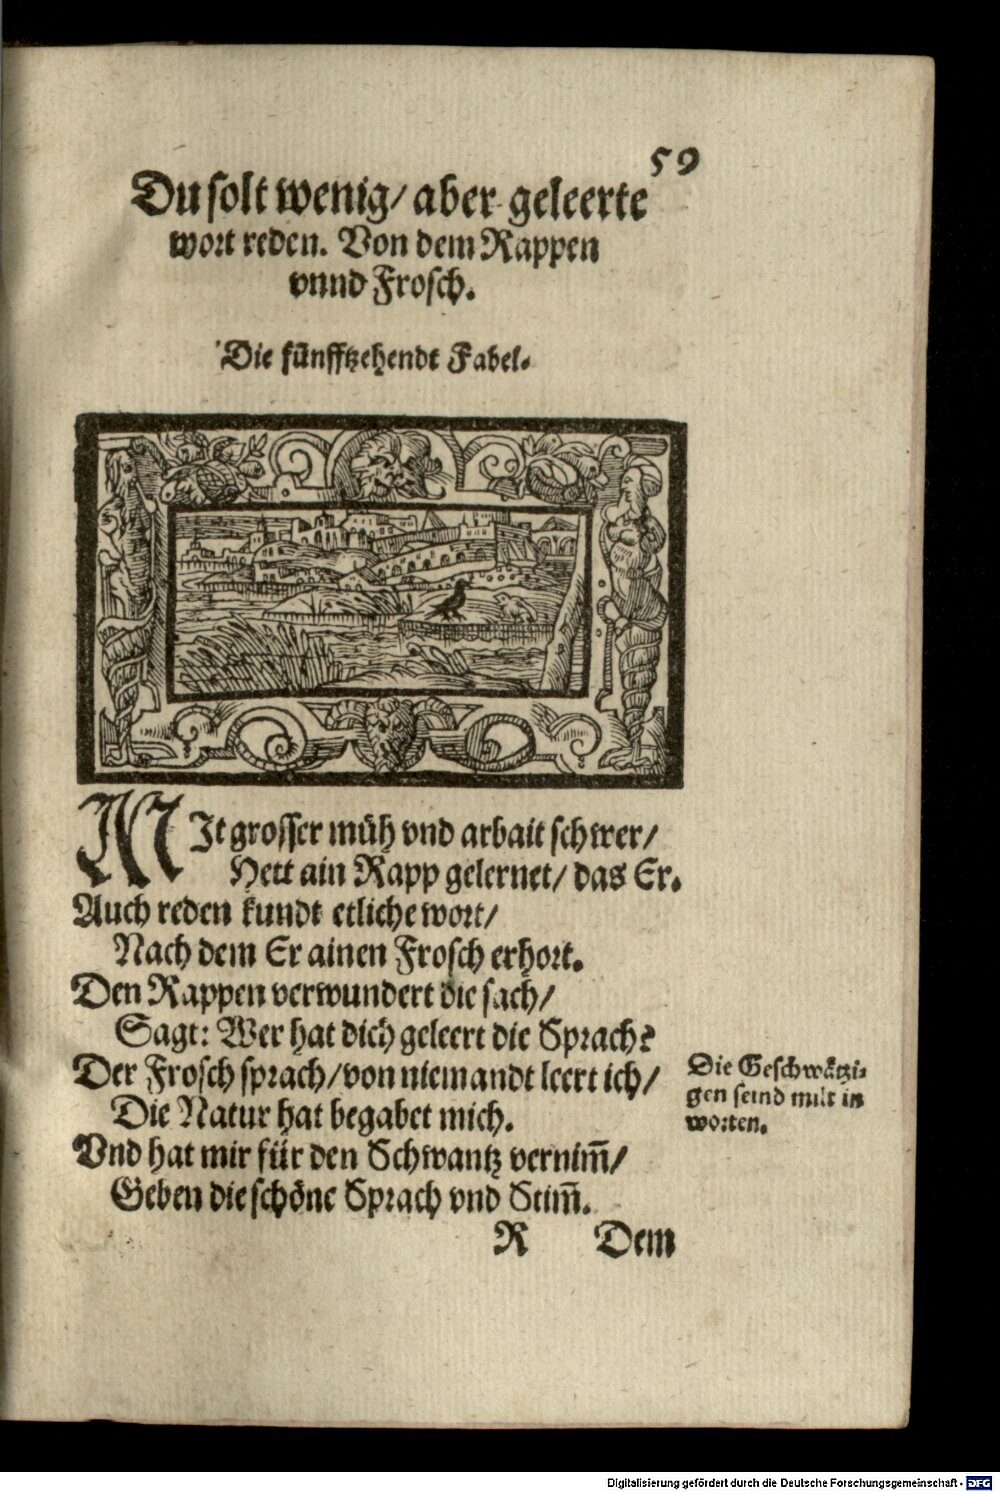 59
Du solt wenig/ aber geleerte
wort reden. Von dem Rappen
vnnd Frosch.
Die fünfftzehendt Fabel.
MIt grosser müh vnd arbait schwer/
Hett ain Rapp gelernet/ das Er.
Auch reden kundt etliche wort/
Nach dem Er ainen Frosch erhort.
Den Rappen verwundert die sach/
Sagt: Wer hat dich geleert die Sprach?
Der Frosch sprach/ von niemandt leert ich/
Die Natur hat begabet mich.
Vnd hat mir für den Schwantz vernim̃/
Geben die schöne Sprach vnd Stim̃.
Die Geschwätzi-
gen seind milt in
worten.
R Dem
Digitalisierung gefördert durch die Deutsche Forschungsgemeinschaft - DFG